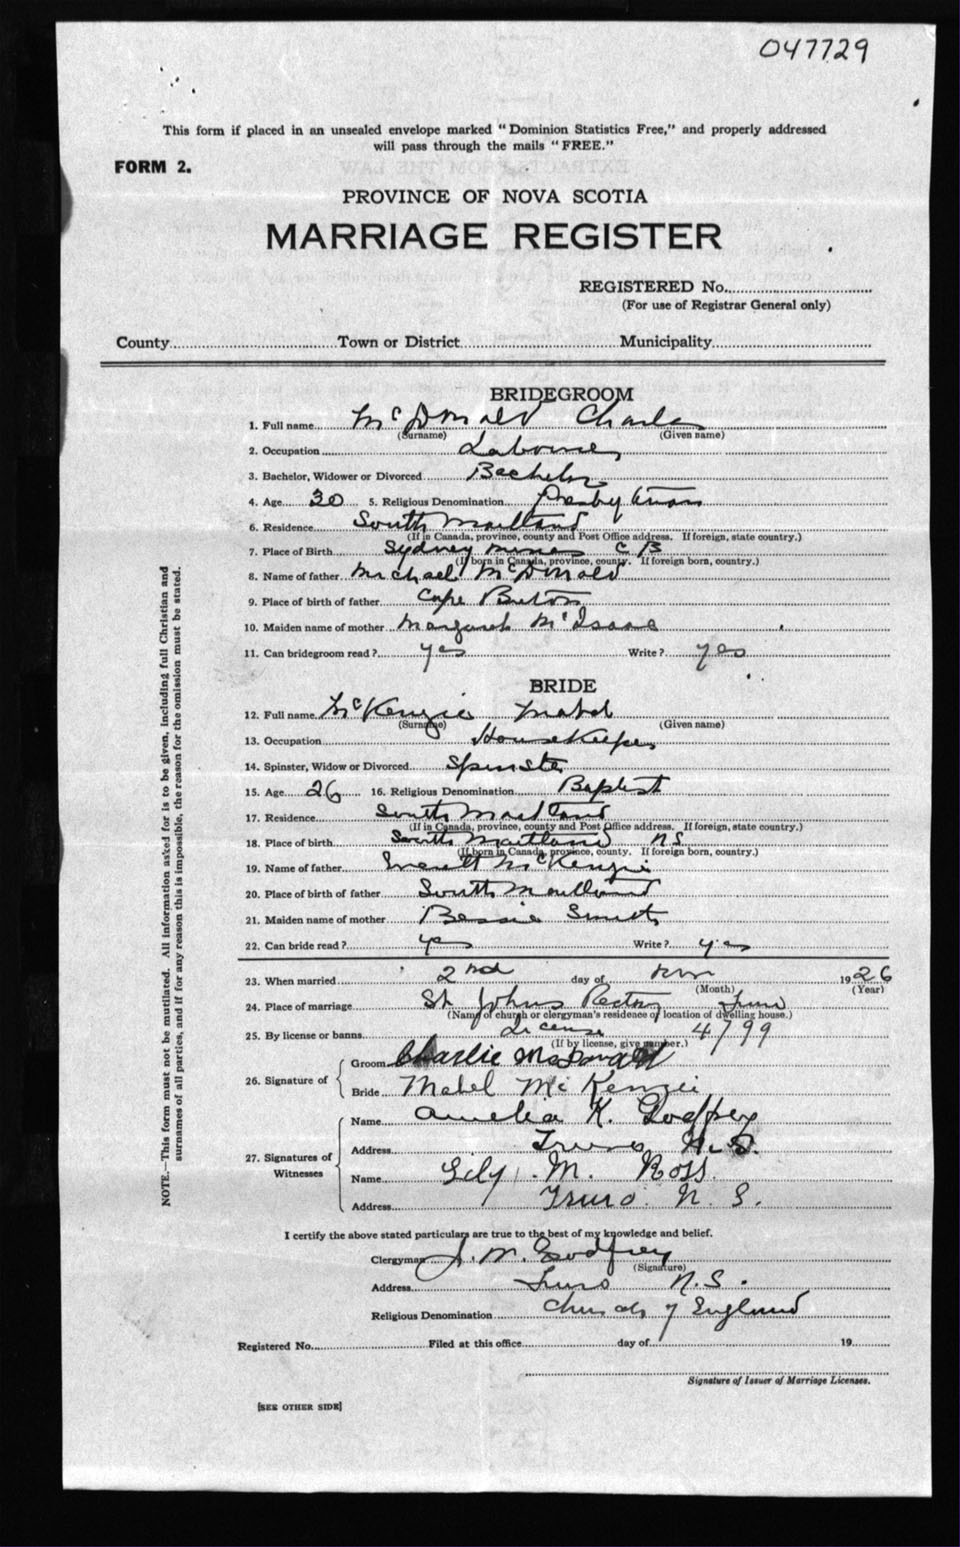 047729
This form if placed in an unsealed envelope marked "Dominion Statistics Free," and properly addressed
will pass through the mails "FREE."
FORM 2.
PROVINCE OF NOVA SCOTIA
MARRIAGE REGISTER
REGISTERED No.
(For use of Registrar General only)
County Town or District Municipality
BRIDEGROOM
1. Full name McDonald Charles
(Surname) (Given name)
2. Occupation Labourer
3. Bachelor, Widower or Divorced Bachelor
4. Age 30 5. Religious Denomination Presbyterian
6. Residence South Maitland
(If in Canada, province, county and Post Office address. If foreign, state country.)
7. Place of Birth Sydney Mines C B
(If born in Canada, province, county. If foreign born, country.)
8. Name of father Michael McDonald
9. Place of birth of father Cape Breton
10. Maiden name of mother Margaret McIsaac
11. Can bridegroom read? yes Write? yes
BRIDE
12. Full name McKenzie Mabel
(Surname) (Given name)
13. Occupation Housekeeper
14. Spinster, Widow or Divorced Spinster
15. Age 26 16. Religious Denomination Baptist
17. Residence South Maitland
(If in Canada, province, county and Post Office address. If foreign, state country.)
18. Place of birth South Maitland N.S
(If born in Canada, province, county. If foreign born, country.)
19. Name of father McKenzie
20. Place of birth of father South Maitland
21. Maiden name of mother Bessie Smith
22. Can bride read? yes Write? yes
23. When married 2nd day of 1926
(Month) (Year)
24. Place of marriage St Johns Rectory Truro
(Name of church or clergyman's residence or location of dwelling house.)
25. By license or banns License 4799
(If by license, give number.)
26. Signature of
Groom Charlie McDonald
Bride Mabel McKenzie
27. Signatures of Witnesses
Name Amelia K. Godfrey
Address Truro N.S.
Name Lily M. Ross
Address Truro N. S.
I certify the above stated particulars are true to the best of my knowledge and belief.
Clergyman J. M. Godfrey
(Signature)
Address Truro N.S.
Religious Denomination Church of England
Registered No. Filed at this office day of 19
Signature of Issuer of Marriage Licenses.
[SEE OTHER SIDE]
NOTE.—This form must not be mutilated. All information asked for is to be given, including full Christian and
surnames of all parties, and if for any reason this is impossible, the reason for the omission must be stated.